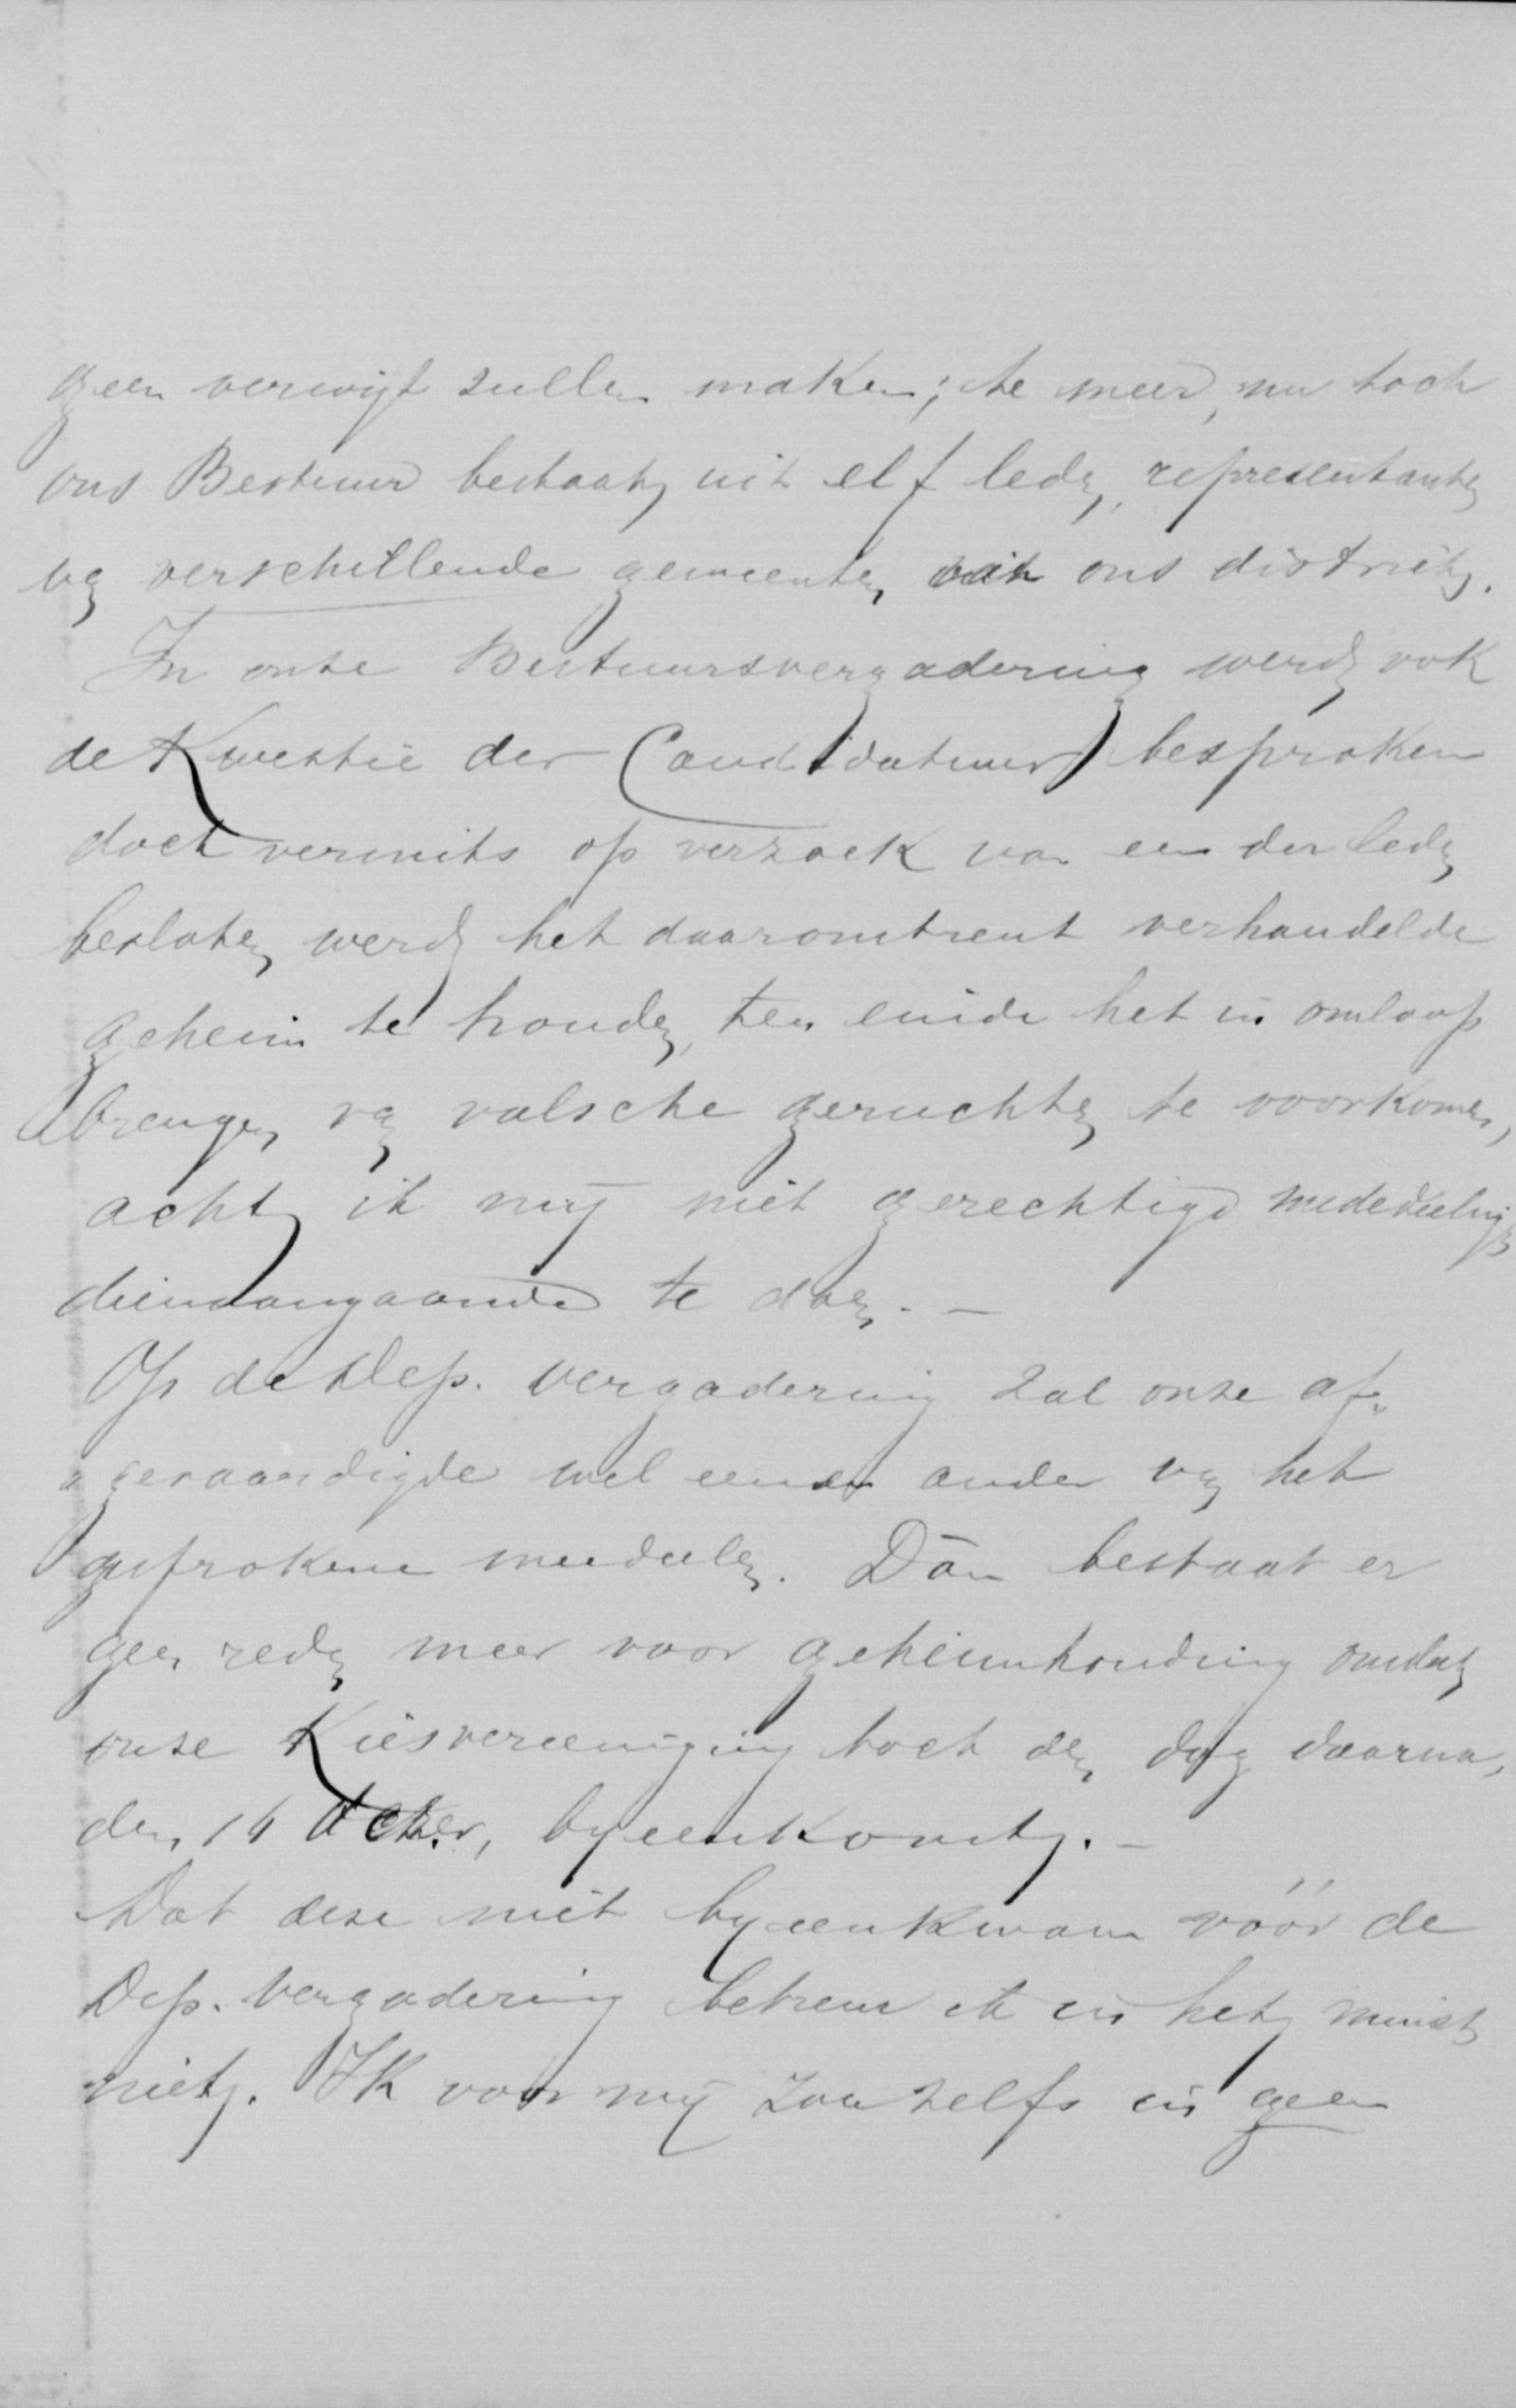 geen verwijt zullen maken; te meer, nu toch
ons Bestuur bestaat uit elf leden, representanten
van verschillende gemeenten van ons district.
In onze Bestuursvergadering werd ook
de Kwestie der Candidatuur besproken
doch vermits op verzoek van een der leden
besloten werd het daaromtrent verhandelde
geheim te houden, ten einde het in omloop
brengen van valsche geruchten te voorkomen,
acht ik mij niet gerechtigd mededeelingen
dienaangaande te doen. —
Op de Dep. vergadering zal onze af„
„gevaardigde wel een en ander van het
gesprokene meedeelen. Dan bestaat er
geen reden meer voor geheimhouding omdat
onze Kiesvereeniging toch den dag daarna,
den 16 Octber, bijeenkomt. —
Dat deze niet bijeenkwam vóór de
Dep. vergadering betreur ik in het minst
niet. Ik voor mij zou zelfs in geen